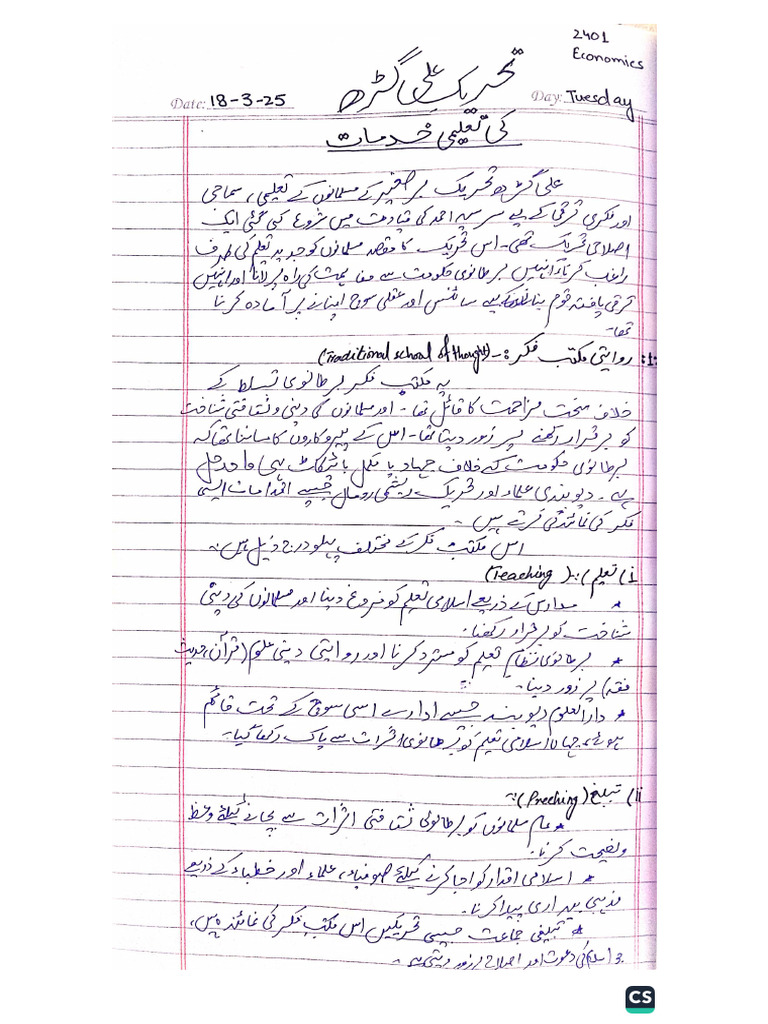 2401
Economics
تحریک علی گڑھ
Date: 18-3-25
Day: Tuesday
کی تعلیمی خدمات
علی گڑھ تحریک برصغیر کے مسلمانوں کے تعلیمی، سماجی
اور فکری ترقی کے لیے سر سید احمد کی قیادت میں شروع کی گئی ایک
اصلاحی تحریک تھی۔ اس تحریک کا مقصد مسلمانوں کو جدید تعلیم کی طرف
راغب کرنا، انہیں برطانوی حکومت سے مفاہمت کی راہ پر لانا اور انہیں
ترقی یافتہ قوم بنانے کیلیے سائنسی اور عقلی سوچ اپنانے پر آمادہ کرنا
تھا۔
1: روایتی مکتب فکر :- (Traditional school of thought)
یہ مکتب فکر برطانوی تسلط کے
خلاف سخت مزاحمت کا قائل تھا۔ اور مسلمانوں کی دینی و ثقافتی شناخت
کو برقرار رکھنے پر زور دیتا تھا۔ اس کے پیروکاروں کا ماننا تھا کہ
برطانوی حکومت کے خلاف جہاد یا مکمل بائیکاٹ ہی واحد حل
ہے۔ دیوبندی علماء اور تحریک ریشمی رومال جیسے اقدامات ایسی
فکر کی نمائندگی کرتے ہیں۔
اس مکتب فکر کے مختلف پہلو درج ذیل ہیں :-
i) تعلیم :- (Teaching)
* مدارس کے ذریعے اسلامی تعلیم کو فروغ دینا اور مسلمانوں کی دینی
شناخت کو برقرار رکھنا۔
* برطانوی نظام تعلیم کو مسترد کرنا اور روایتی دینی علوم (قرآن، حدیث
فقہ) پر زور دینا۔
* دارالعلوم دیوبند جیسے ادارے اسی سوچ کے تحت قائم
ہوئے، جہاں اسلامی تعلیم کو برطانوی اثرات سے پاک رکھا گیا۔
ii) تبلیغ (Preeching) :-
* عام مسلمانوں کو برطانوی ثقافتی اثرات سے بچانے کیلئے وعظ
و نصیحت کرنا۔
* اسلامی اقدار کو اجاگر کرنے کیلئے صوفیاء، علماء اور خطباء کے ذریعے
مذہبی بیداری پیدا کرنا۔
* تبلیغی جماعت جیسی تحریکیں اس مکتب فکر کی نمائندہ ہیں،
جو اسلام کی دعوت اور اصلاح پر زور دیتی ہے۔
CS